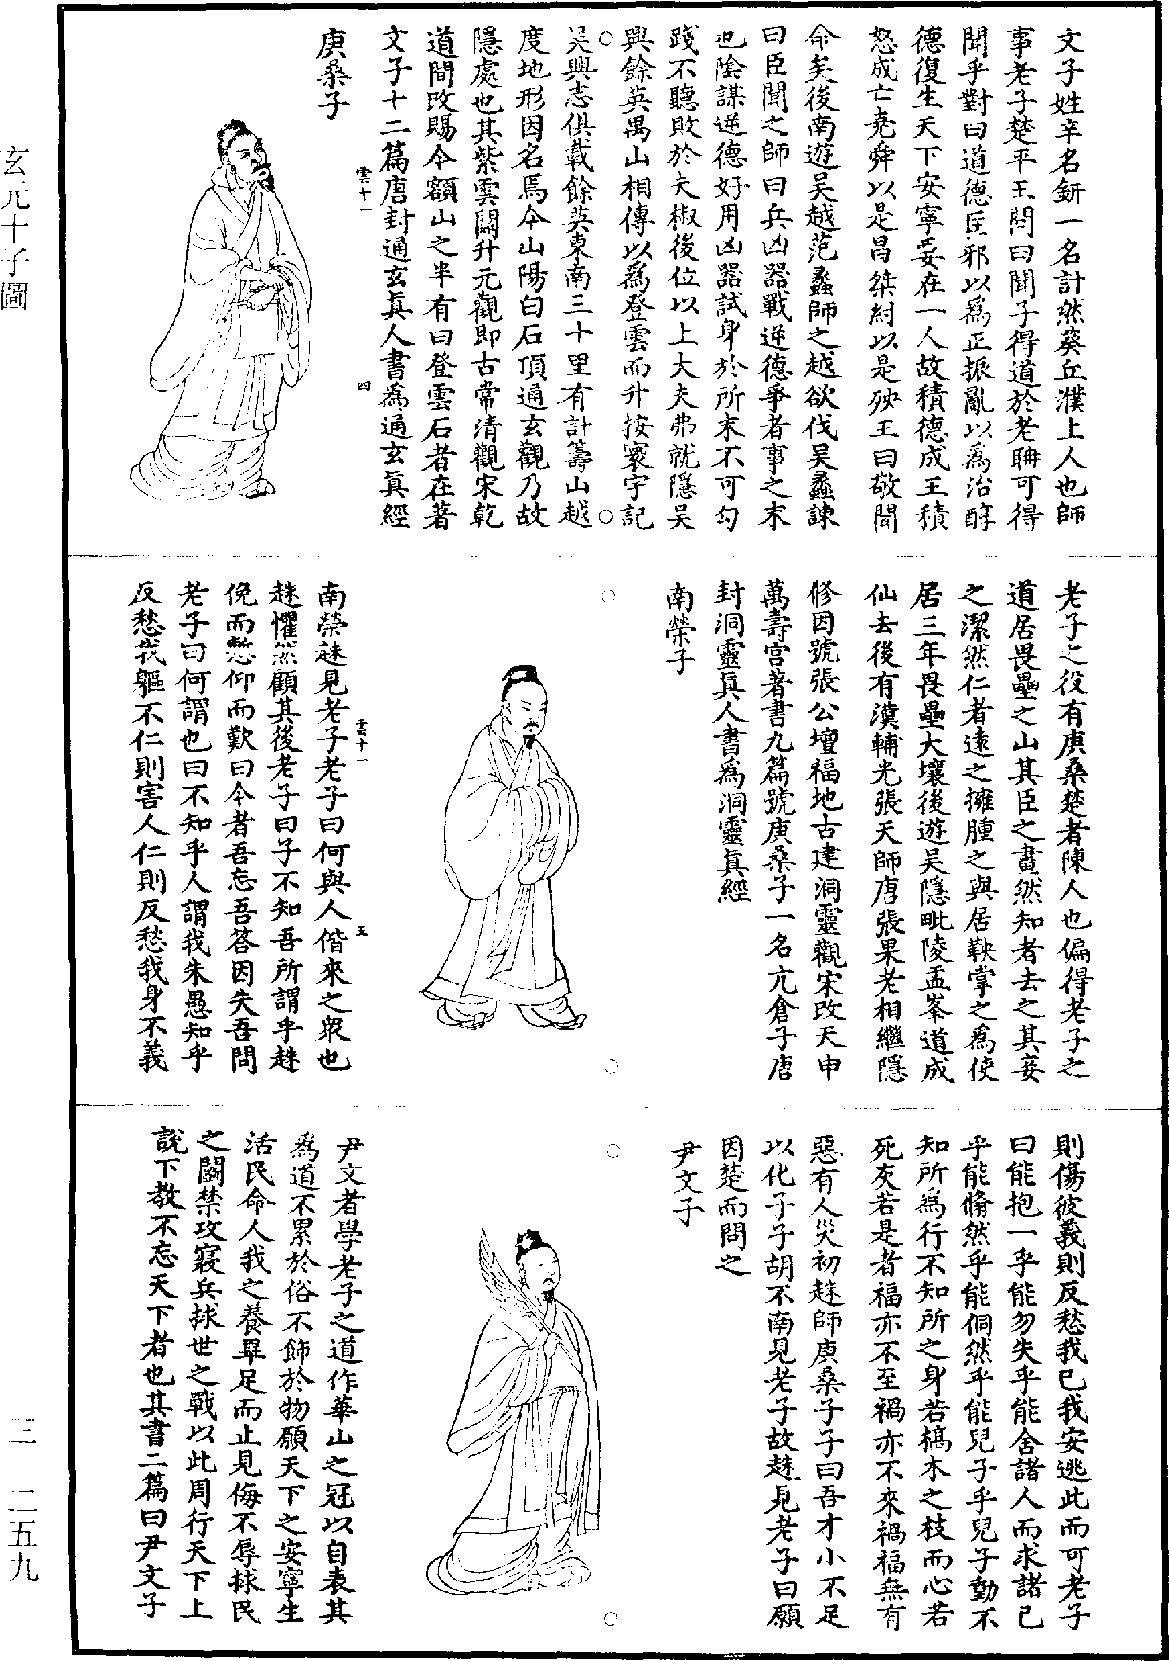 玄元十子圖
文子姓辛名鈃一名計然葵丘濮上人也師
事老子楚平王問曰聞子得道於老聃可得
聞乎對曰道德匡邪以爲正振亂以爲治醇
德復生天下安寧妾在一人故積德成王積
怒成亡堯舜以是昌桀紂以是殃王曰敬聞
命矣後南遊吳越范蠡師之越欲伐吳蠡諫
曰臣聞之師曰兵凶器戰逆德爭者事之末
也陰謀逆德好用凶器試身於所末不可勾
踐不聽敗於夫椒後位以上大夫弗就隱吳
興餘英禺山相傳以爲登雲而升按寰宇記
吳興志俱載餘英東南三十里有計籌山越
度地形因名焉今山陽白石頂通玄觀乃故
隱處也其紫雲關升元觀即古常清觀宋乾
道間改賜今額山之半有曰登雲石者在著
文子十二篇唐封通玄真人書爲通玄真經
雲十一
四
庚桑子
老子之役有庚桑楚者陳人也偏得老子之
道居畏壘之山其臣之畫然知者去之其妾
之潔然仁者遠之擁腫之與居鞅掌之爲使
居三年畏壘大壤後遊吳隱毗陵孟峯道成
仙去後有漢輔光張天師唐張果老相繼隱
修因號張公壇福地古建洞靈觀宋改天申
萬壽宮著書九篇號庚桑子一名亢倉子唐
封洞靈真人書爲洞靈真經
南榮子
雲十一
五
南榮趎見老子老子曰何與人偕來之衆也
趎懼然顧其後老子曰子不知吾所謂乎趎
俛而慙仰而歎曰今者吾忘吾答因失吾問
老子曰何謂也曰不知乎人謂我朱愚知乎
反愁我軀不仁則害人仁則反愁我身不義
則傷彼義則反愁我已我安逃此而可老子
曰能抱一乎能勿失乎能舍諸人而求諸已
乎能翛然乎能侗然乎能兒子乎兒子動不
知所爲行不知所之身若槁木之枝而心若
死灰若是者福亦不至禍亦不來禍福無有
惡有人災初趎師庚桑子子曰吾才小不足
以化子子胡不南見老子故趎見老子曰願
因楚而問之
尹文子
尹文者學老子之道作華山之冠以自表其
爲道不累於俗不飾於物願天下之安寧生
活民命人我之養畢足而止見侮不辱捄民
之鬬禁攻寢兵捄世之戰以此周行天下上
說下教不忘天下者也其書二篇曰尹文子
三　二五九